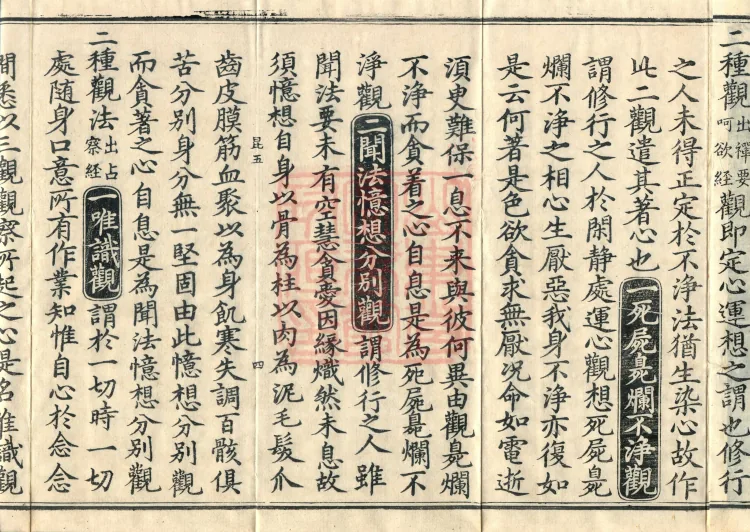 二種觀出禪要呵欲經觀即定心運想之謂也修行
之人未得正定於不淨法猶生染心故作
此二觀遣其著心也一死屍臭爛不淨觀
謂修行之人於閑静處運心觀想死屍臭
爛不淨之相心生厭惡我身不淨亦復如
是云何著是色欲貪求無厭况命如電逝
湏㬰難保一息不来與彼何異由觀臭爛
不淨而貪着之心自息是為死屍臭爛不
淨觀二聞法憶想分別觀謂修行之人雖
聞法要未有空慧貪愛因縁熾然未息故
須憶想自身以骨為柱以肉為泥毛髮爪
昆五
四
齒皮膜筋血聚以為身飢寒失調百骸俱
苦分別身分無一堅固由此憶想分別觀
而貪著之心自息是為聞法憶想分別觀
二種觀法出占察經一唯識觀謂於一切時一切
處随身口意所有作業知惟自心於念念
間悉以三觀觀察所起之心是名唯識觀